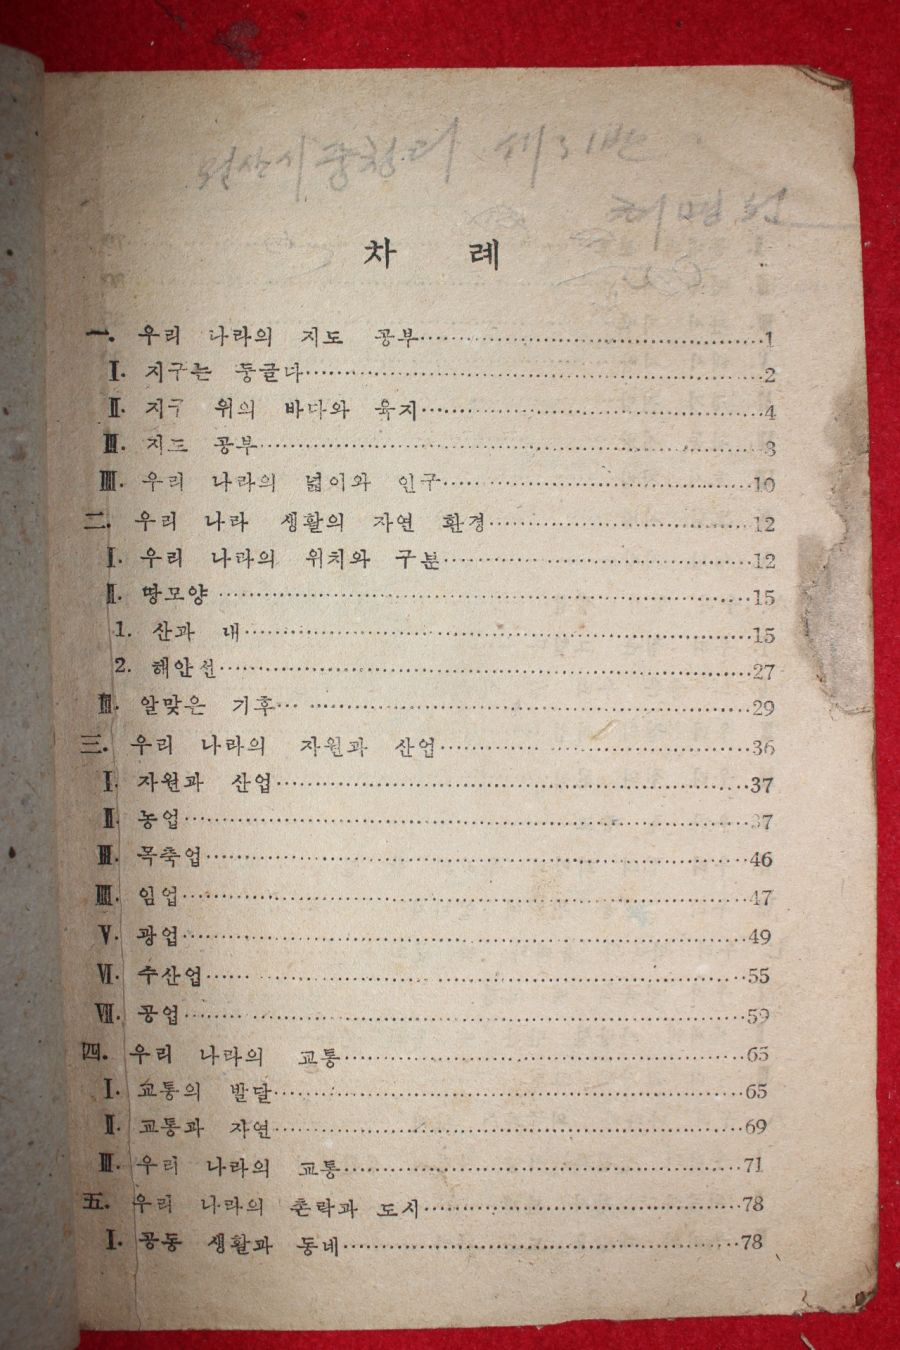 차 례
一. 우리 나라의 지도 공부……1
Ⅰ. 지구는 둥글다……2
Ⅱ. 지구 위의 바다와 육지……4
Ⅲ. 지도 공부……8
ⅡⅡ. 우리 나라의 넓이와 인구……10
二. 우리 나라 생활의 자연 환경……12
Ⅰ. 우리 나라의 위치와 구분……12
Ⅱ. 땅모양……15
1. 산과 내……15
2. 해안선……27
Ⅲ. 알맞은 기후……29
三. 우리 나라의 자원과 산업……36
Ⅰ. 자원과 산업……37
Ⅱ. 농업……37
Ⅲ. 목축업……46
ⅡⅡ. 임업……47
Ⅴ. 광업……49
Ⅵ. 수산업……55
Ⅶ. 공업……59
四. 우리 나라의 교통……65
Ⅰ. 교통의 발달……65
Ⅱ. 교통과 자연……69
Ⅲ. 우리 나라의 교통……71
五. 우리 나라의 촌락과 도시……78
Ⅰ. 공동 생활과 동네……78